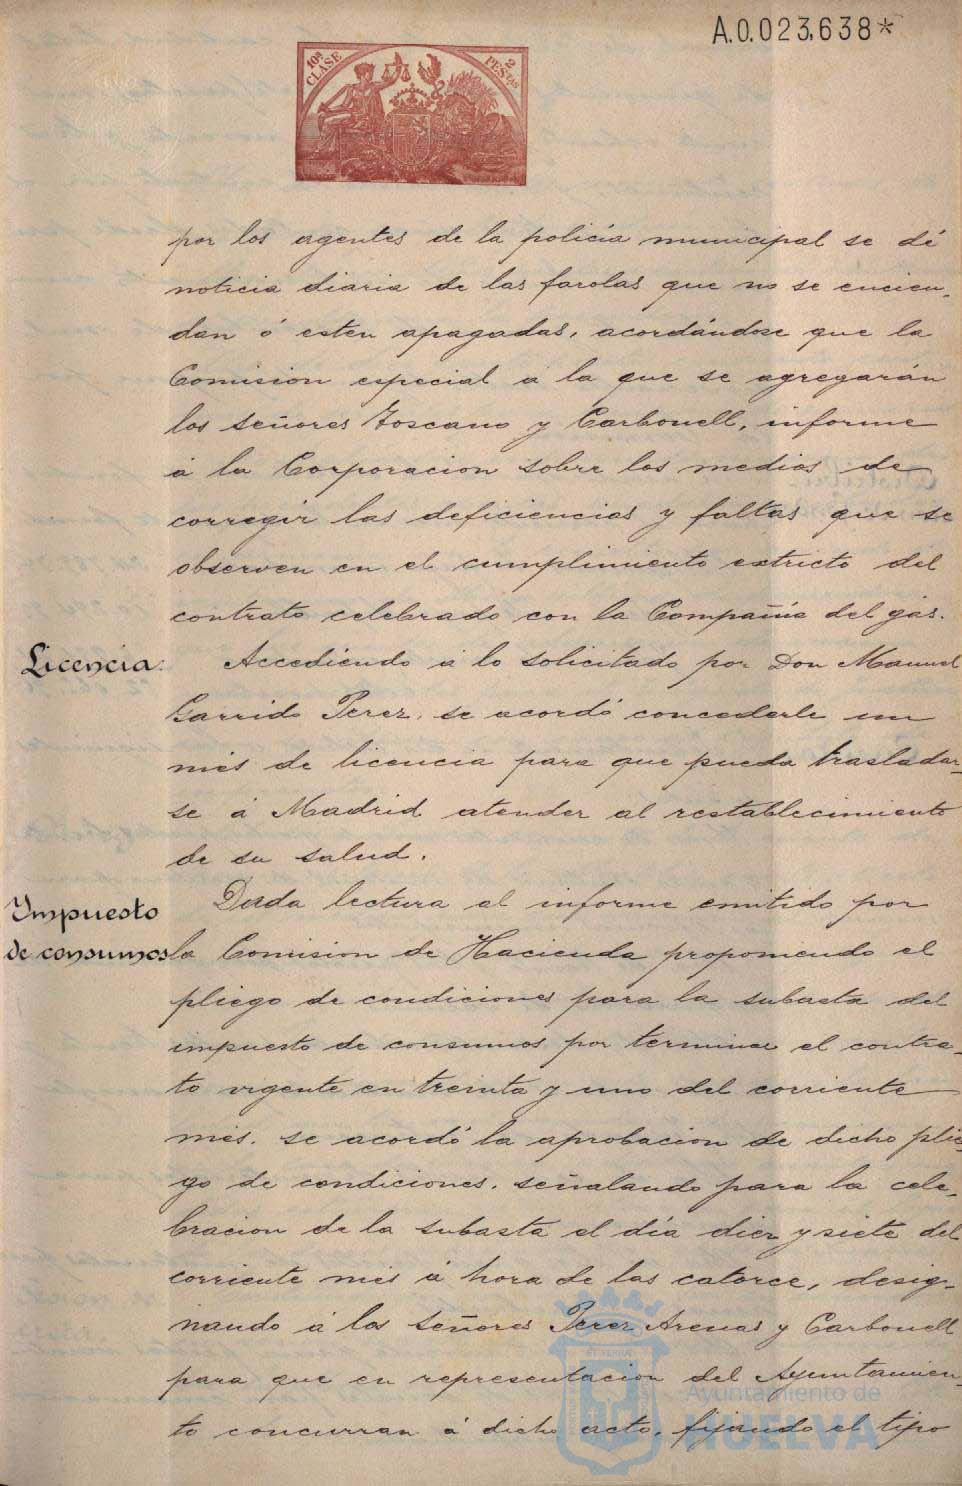 A.0.023,638*
10ª CLASE
2 PESTAS
por los agentes de la policía municipal se dé
noticia diaria de las farolas que no se encien-
dan ó esten apagadas, acordándose que la
Comision especial á la que se agregarán
los señores Toscano y Carbonell, informe
á la Corporacion sobre los medios de
corregir las deficiencias y faltas que se
observen en el cumplimiento extricto del
contrato celebrado con la Compañia del gas.
Licencia.
Accediendo á lo solicitado por Don Manuel
Garrido Perez, se acordó concederle un
mes de licencia para que pueda trasladar-
se á Madrid atender al restablecimiento
de su salud.
Impuesto
de consumos
Dada lectura el informe emitido por
la Comision de Hacienda proponiendo el
pliego de condiciones para la subasta del
impuesto de consumos por terminar el contra-
to vigente en treinta y uno del corriente
mes, se acordó la aprobacion de dicho plie-
go de condiciones, señalando para la cele-
bracion de la subasta el día diez y siete del
corriente mes á hora de las catorce, desig-
nando á los señores Perez Arenas y Carbonell
para que en representacion del Ayuntamien-
to concurran á dicho acto, fijando el tipo
Ayuntamiento de
HUELVA